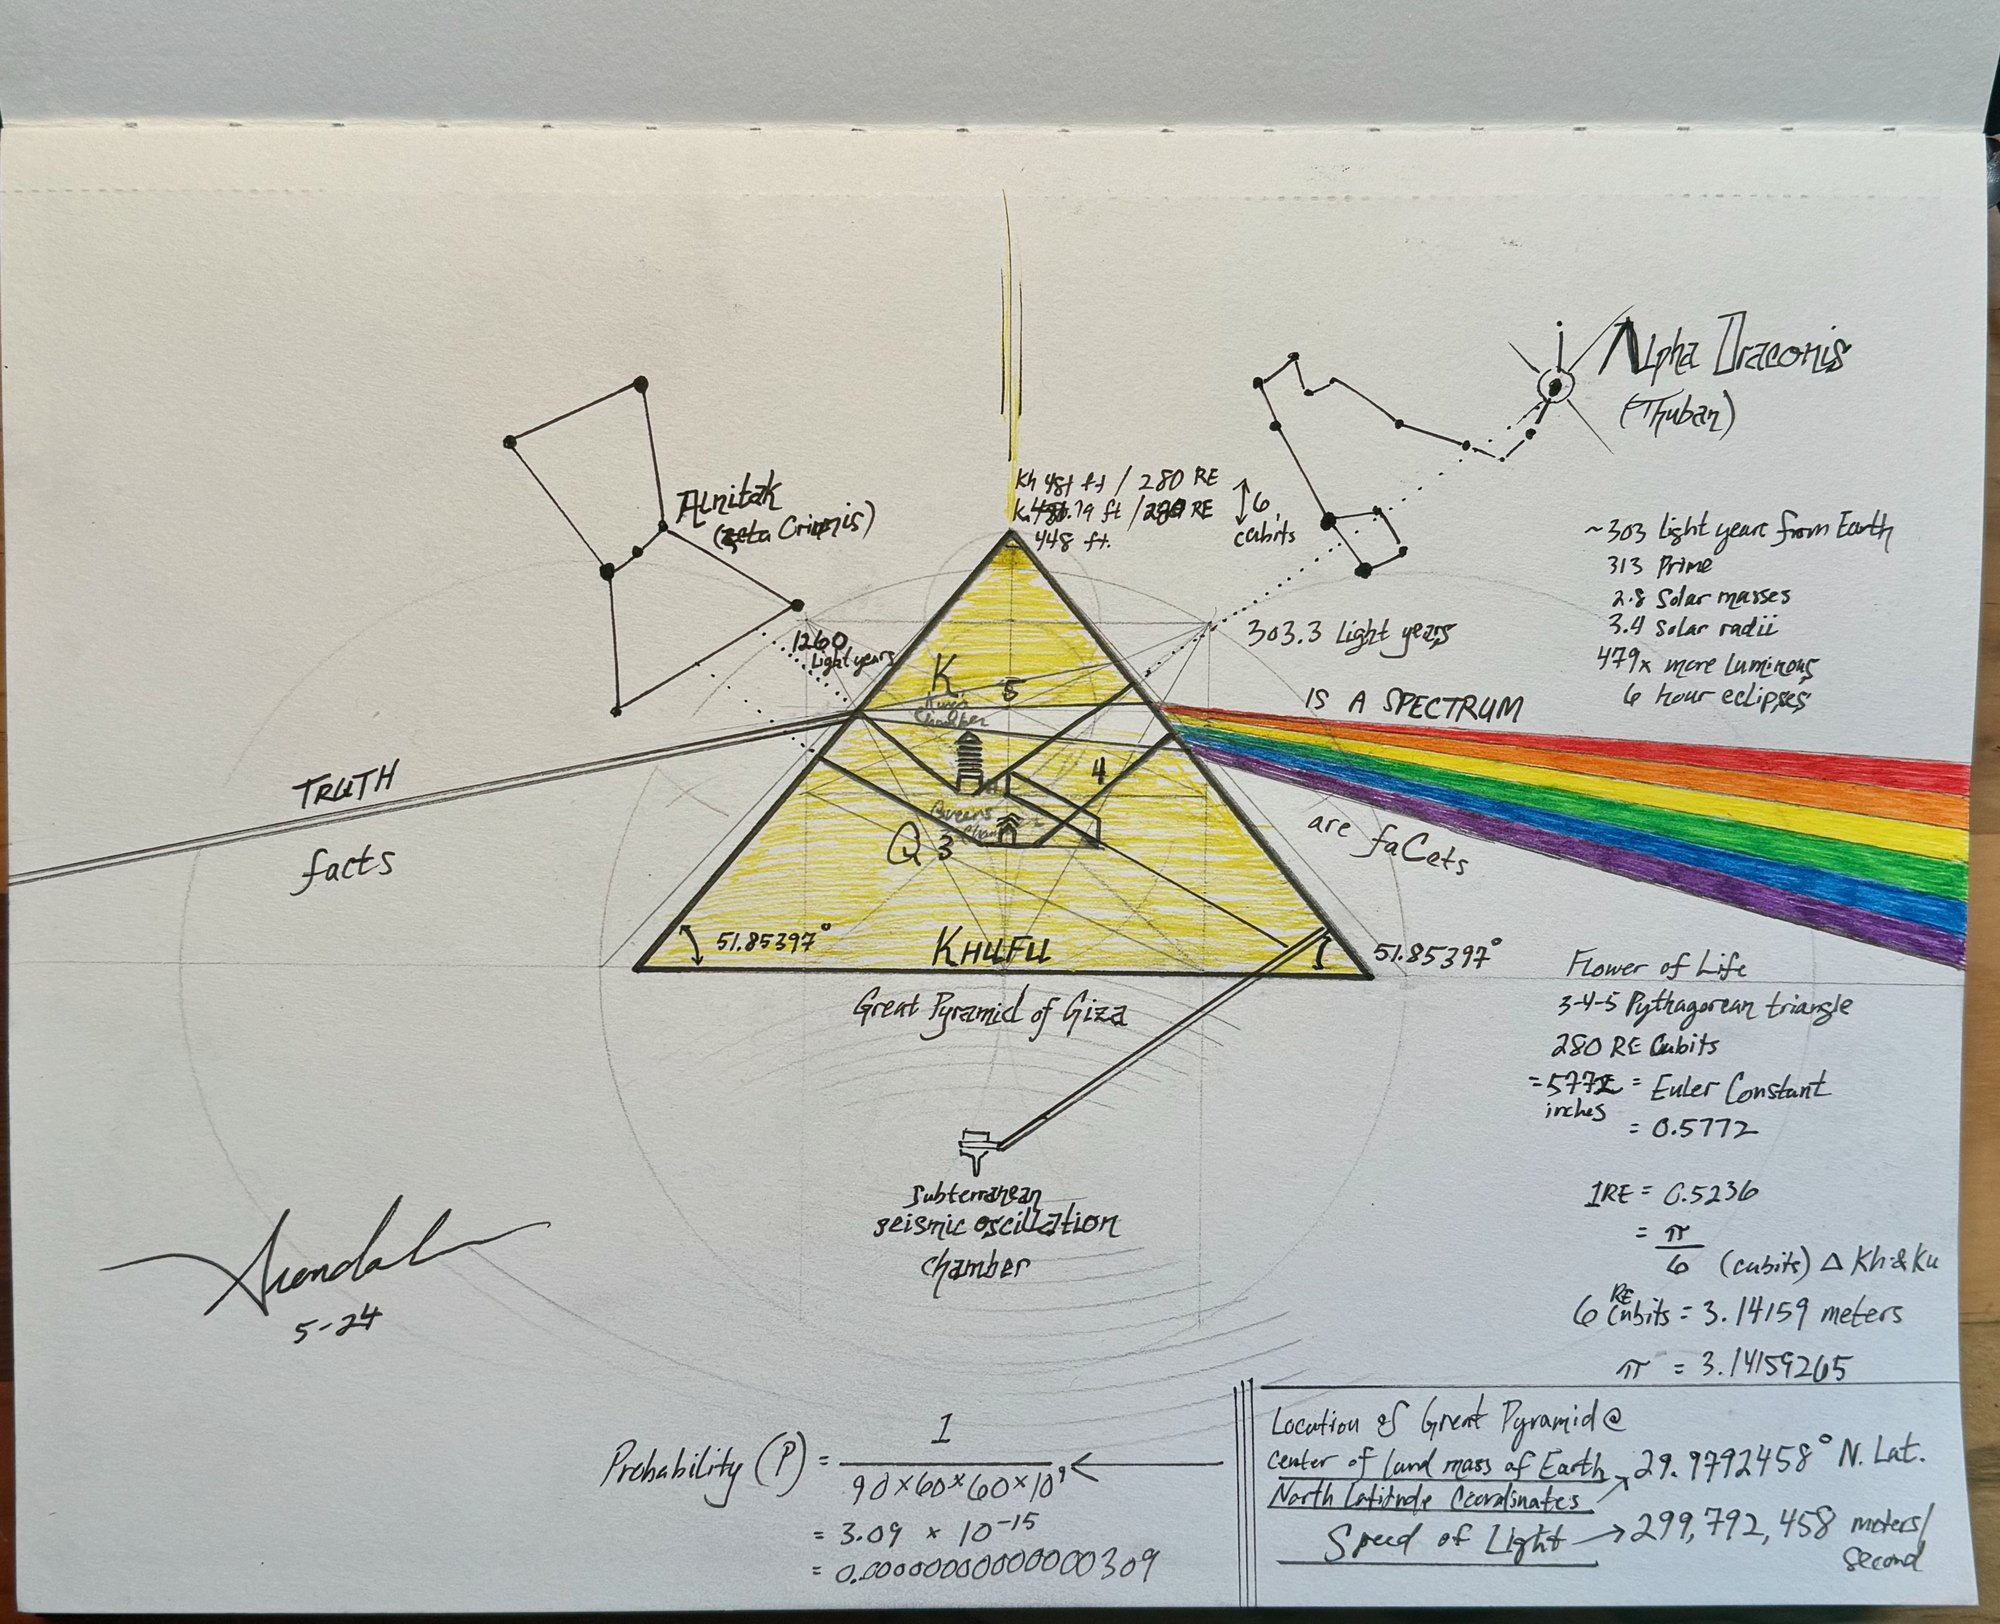 Alpha Draconis
(Thuban)
Alnitak
(zeta Orionis)
Kh 481 ft / 280 RE
448 ft.
6
cubits
~303 light years from Earth
313 Prime
2.8 Solar masses
3.4 Solar radii
479x more luminous
6 hour eclipses
1260
Light years
303.3 Light years
K
King's
Chamber
5
IS A SPECTRUM
TRUTH
facts
4
Queens
Q 3
are faCets
51.85397°
KHUFU
51.85397°
Great Pyramid of Giza
Flower of Life
3-4-5 Pythagorean triangle
280 RE Cubits
= 5772 = Euler Constant
inches
= 0.5772
Subterranean
seismic oscillation
chamber
1RE = 0.5236
= π
6 (cubits) Δ Kh & Ku
6 RE Cubits = 3.14159 meters
π = 3.14159265
5-24
Probability (P) = 1
90 x 60 x 60 x 10⁹
= 3.09 x 10⁻¹⁵
= 0.00000000000000309
Location of Great Pyramid @
center of land mass of Earth
North Latitude Coordinates → 29.9792458° N. Lat.
Speed of Light → 299,792,458 meters/
second